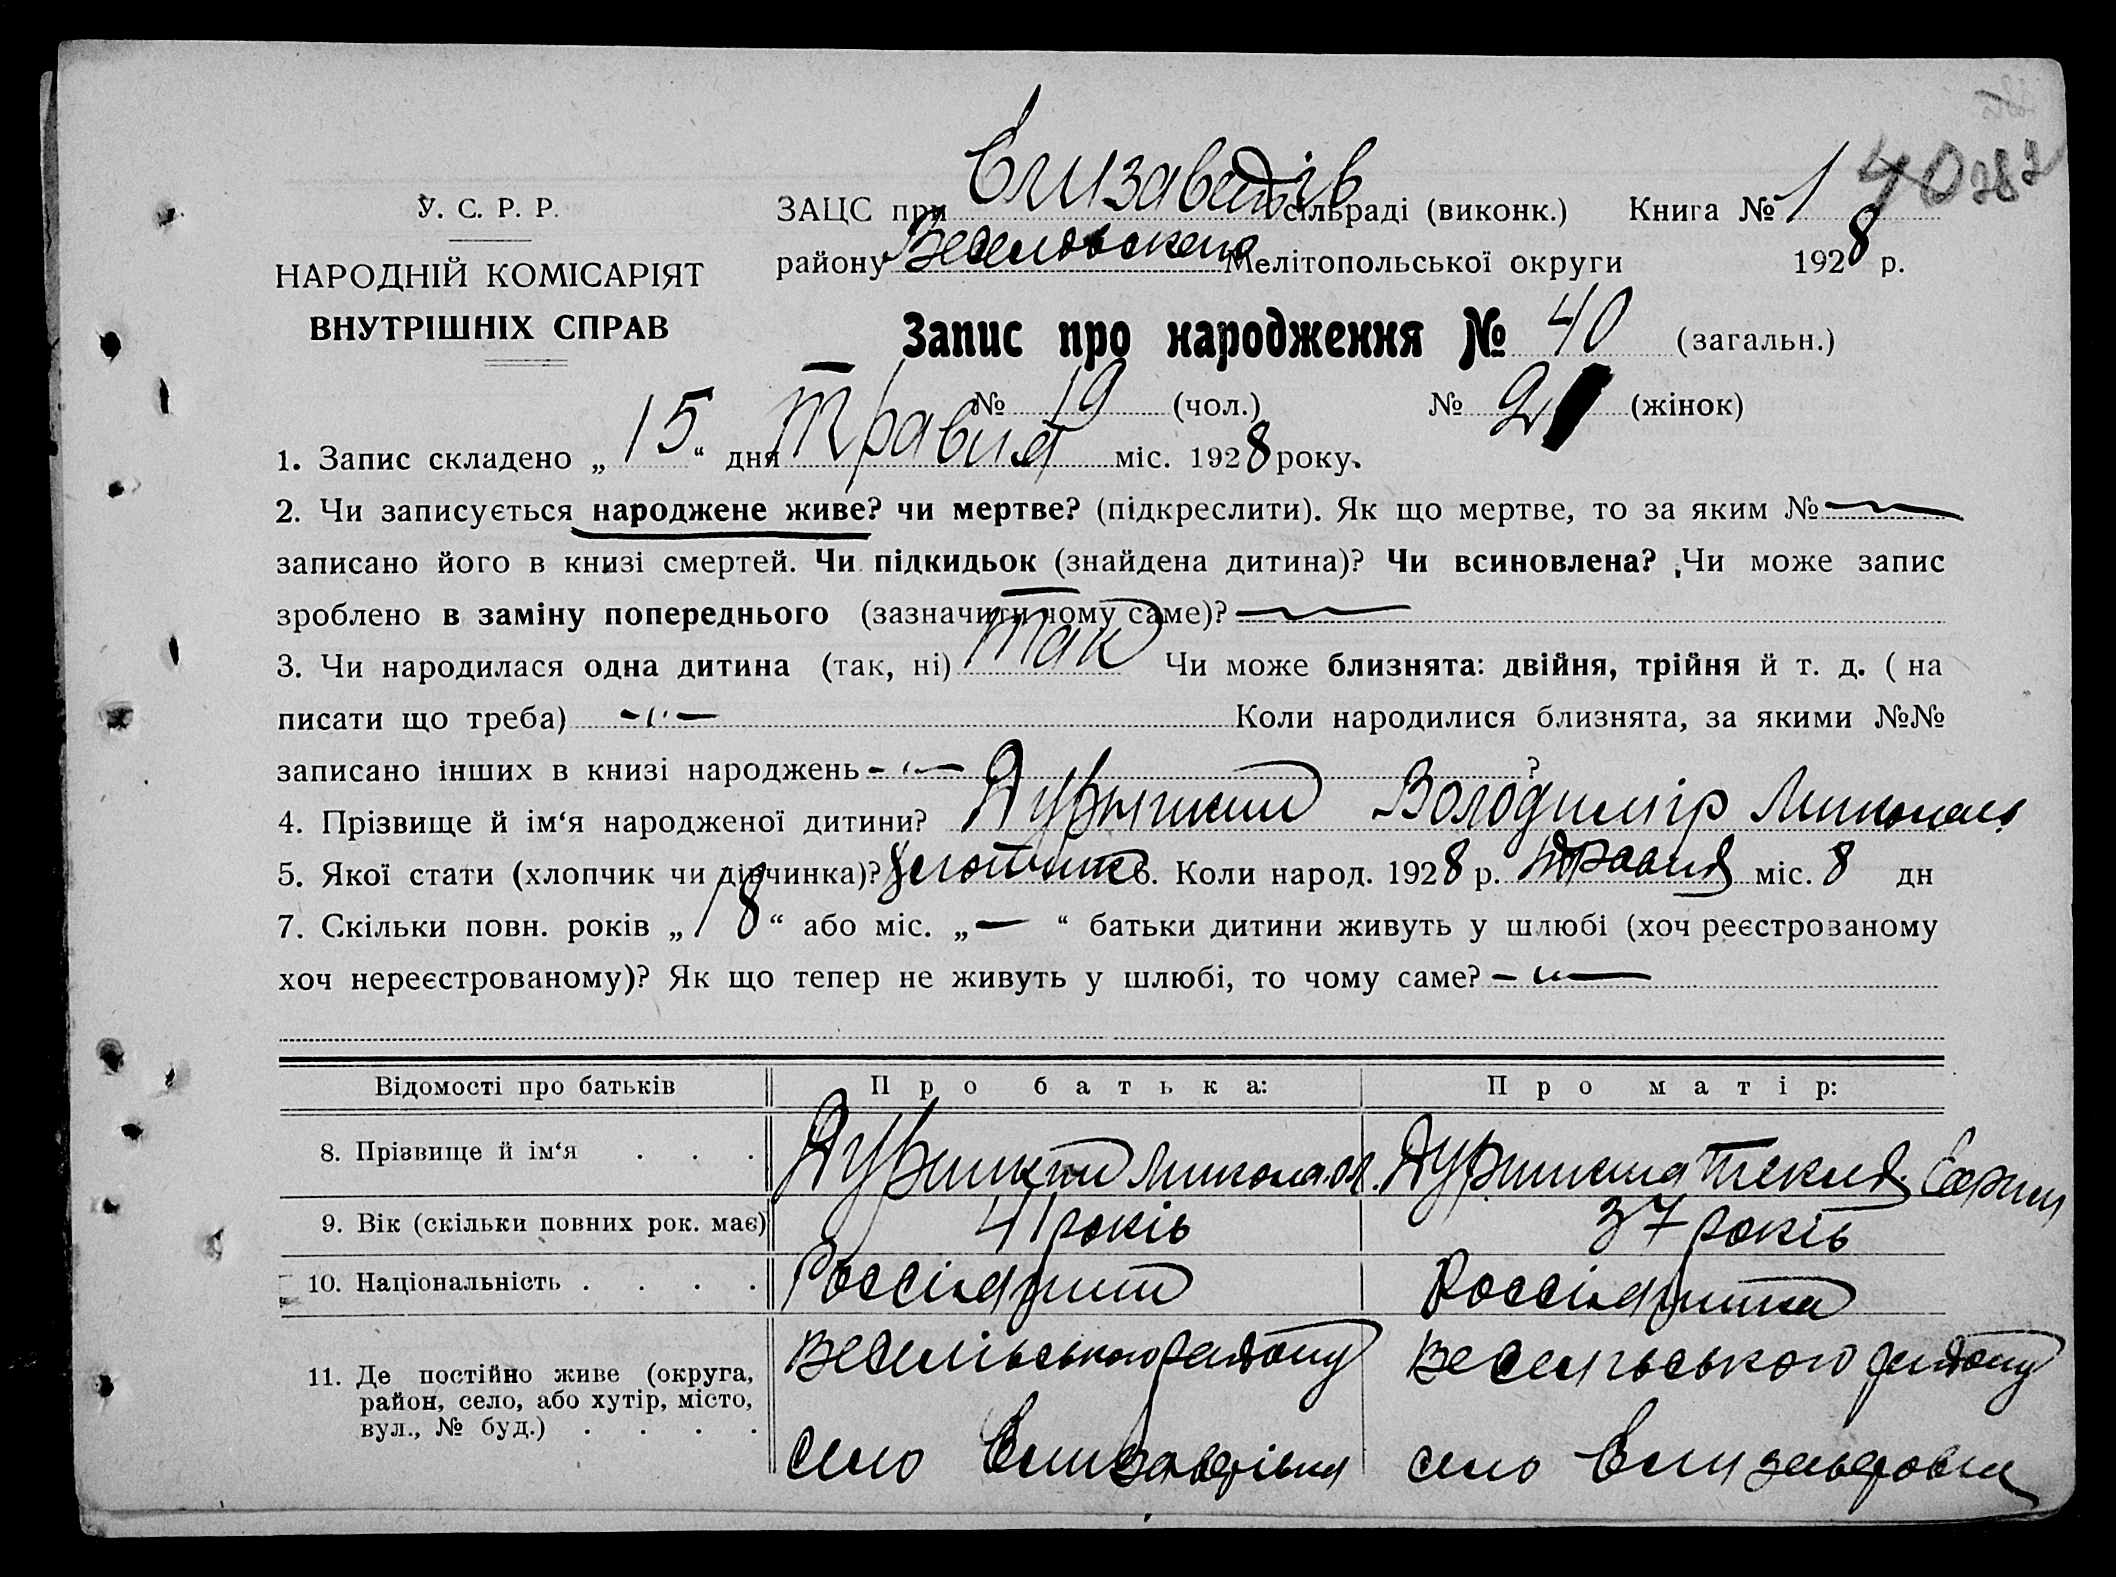 40 282
У. С. Р. Р.
НАРОДНІЙ КОМІСАРІЯТ
ВНУТРІШНІХ СПРАВ
ЗАЦС при Єлизаведів сільраді (виконк.) Книга № 1
району Веселовского Мелітопольської округи 1928 р.
Запис про народження № 40 (загальн.)
№ 19 (чол.) № 21 (жінок)
1. Запис складено „ 15 “ дня Травня міс. 1928 року.
2. Чи записується народжене живе? чи мертве? (підкреслити). Як що мертве, то за яким №
записано його в книзі смертей. Чи підкидьок (знайдена дитина)? Чи всиновлена? Чи може запис
зроблено в заміну попереднього (зазначити чому саме)?
3. Чи народилася одна дитина (так, ні) Так Чи може близнята: двійня, трійня й т. д. ( на
писати що треба) -〃- Коли народилися близнята, за якими №№
записано інших в книзі народжень -〃- ?
4. Прізвище й ім‘я народженої дитини? Володимір Миколаєв
5. Якої стати (хлопчик чи дівчинка)? хлопчик 6. Коли народ. 1928 р. травня міс. 8 дн
7. Скільки повн. років „ 18 “ або міс. „ — “ батьки дитини живуть у шлюбі (хоч реєстрованому
хоч нереєстрованому)? Як що тепер не живуть у шлюбі, то чому саме? -〃-
Відомості про батьків Про батька: Про матір:
8. Прізвище й ім‘я . . . Микола Текля
9. Вік (скільки повних рок. має) 41 років 37 років
10. Національність . . . . Россіяним Россіянка
11. Де постійно живе (округа,
район, село, або хутір, місто,
вул., № буд.) . . . .
Весельського району Весельського району
село Елизаведівка село Елизаведовка